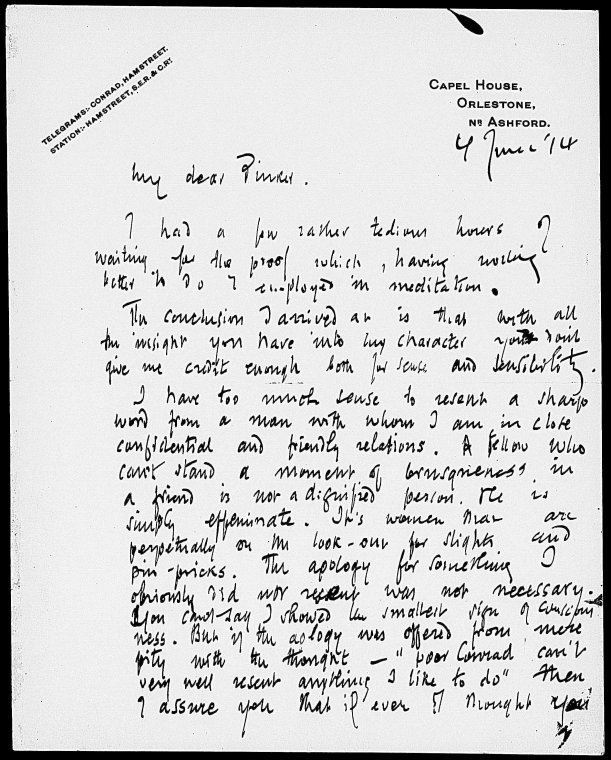 TELEGRAMS:- CONRAD, HAMSTREET.
STATION:- HAMSTREET, S.E.R. & C.RY.
CAPEL HOUSE,
ORLESTONE,
NR ASHFORD.
4 June '14
My dear Pinker.
I had a few rather tedious hours of
waiting for the proof which, having nothing
better to do I employed in meditation.
The conclusion I arrived at is that with all
the insight you have into my character you don't
give me credit enough both for sense and sensibility.
I have too much sense to resent a sharp
word from a man with whom I am in close
confidential and friendly relations. A fellow who
can't stand a moment of brusqueness in
a friend is not a dignified person. He is
simply effeminate. It's women that are
perpetually on the look-out for slights and
pin-pricks. The apology for something I
obviously did not resent was not necessary.
You can't say I showed the smallest sign of conscious
ness. But if the aology was offered from mere
pity with the thought — "poor Conrad can't
very well resent anything I like to do" then
I assure you that if ever I thought you